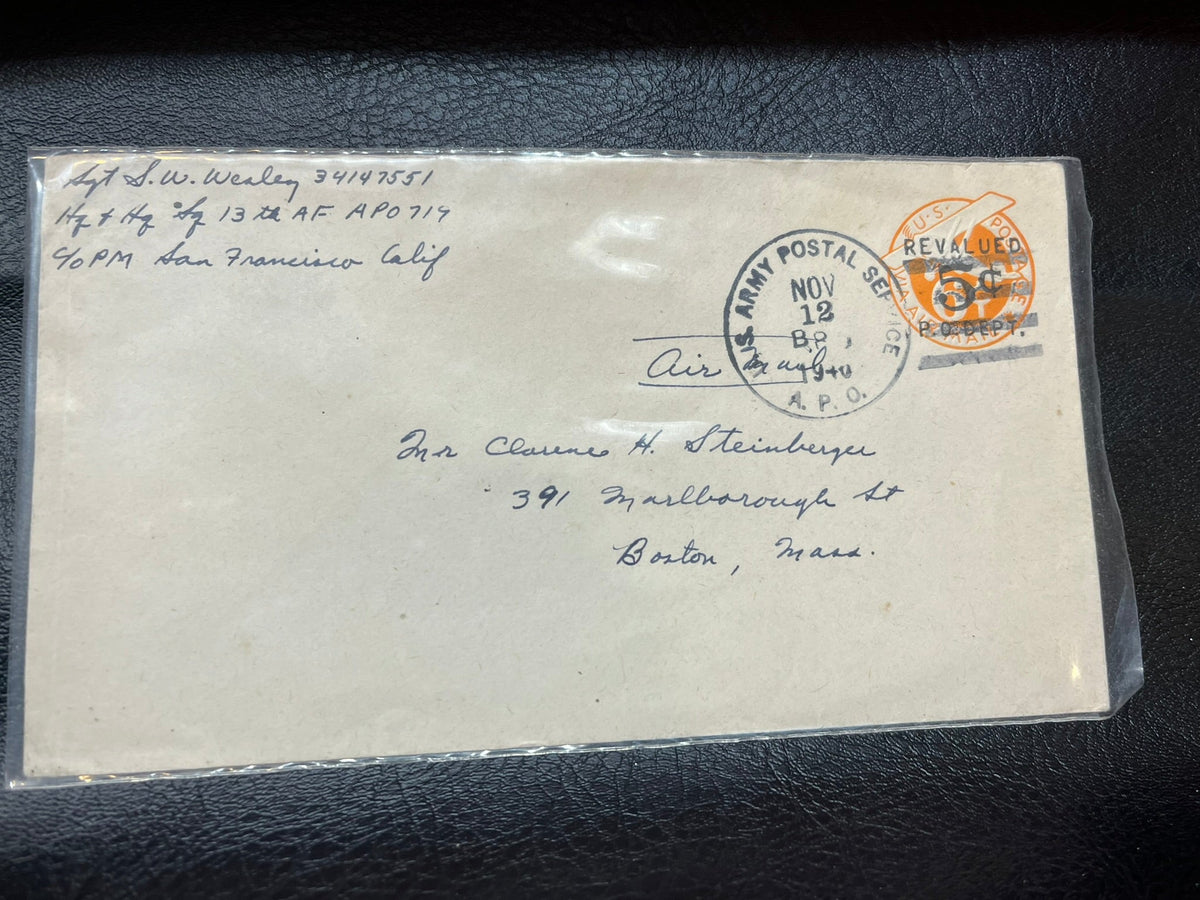 Sgt S. W. Wesley 34147551
Hq & Hq Sq 13th AF APO 719
c/o PM San Francisco Calif
U.S. POSTAGE
VIA AIR MAIL
6¢
REVALUED
5¢
P.O. DEPT.
U.S. ARMY POSTAL SERVICE
NOV
12
A. P. O.
Air Mail
Mr Clarence H. Steinberger
391 Marlborough St
Boston, Mass.